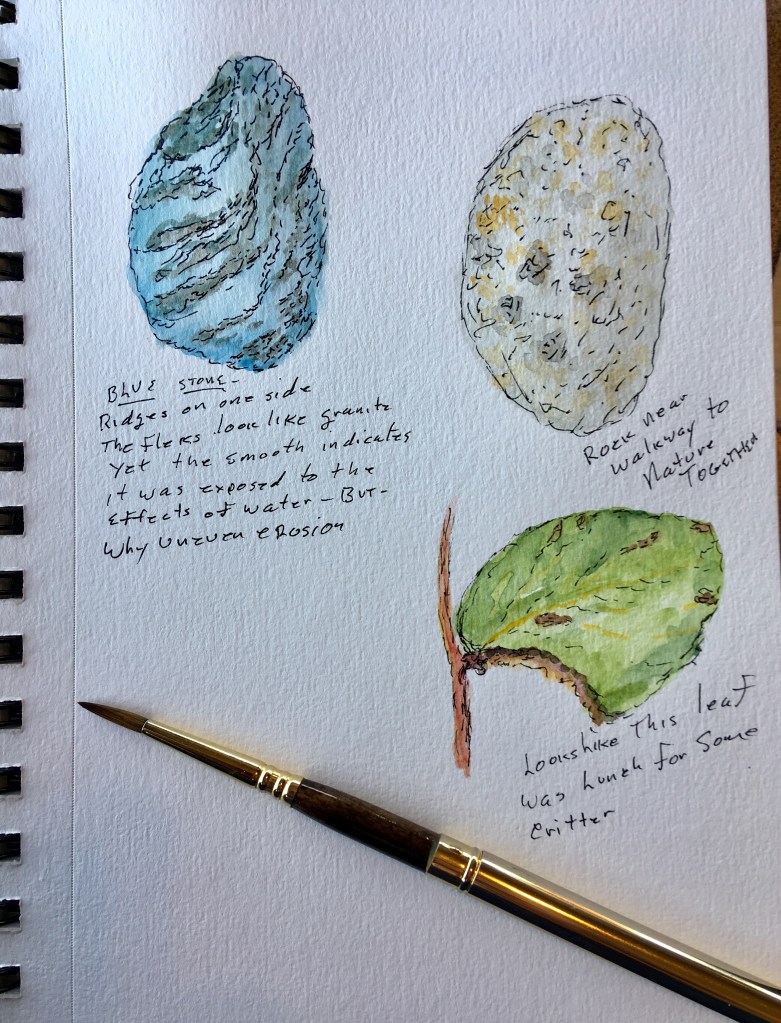 BLUE STONE-
Ridges on one side
The Fleks look like granite
Yet the smooth indicates
it was exposed to the
effects of water - BUT -
Why UNEVEN EROSION
Rock near
walkway to
Nature
TOGETHER
Looks like This leaf
was Lunch for Some
Critter